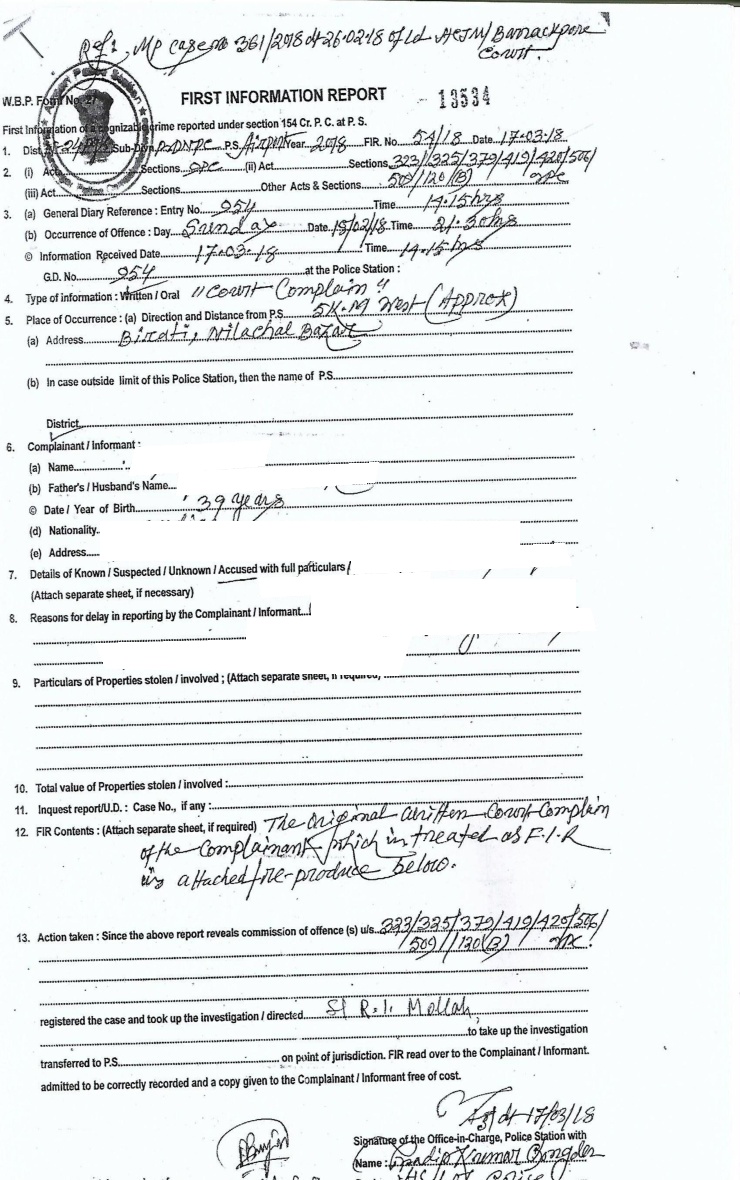 Ref: MP case no 361/2018 dt 26.02.18 of Ld ACJM/Barrackpore
Court.
W.B.P. Form No. 27
FIRST INFORMATION REPORT 13534
First Information of a cognizable crime reported under section 154 Cr. P. C. at P. S.
1. Dist. Sub-Divn. P.S. Airport Year 2018 FIR. No. 54/18 Date 17.03.18
2. (i) Act Sections IPC (ii) Act Sections 323/325/379/419/420/506/
(iii) Act Sections Other Acts & Sections 509/120(B) IPC
3. (a) General Diary Reference : Entry No. 954 Time 14.15 hrs
(b) Occurrence of Offence : Day Sunday Date 18/02/18 Time 21.30 hrs
© Information Received Date 17.03.18 Time 14.15 hrs
G.D. No. 954 at the Police Station :
4. Type of information : Written / Oral "Court Complain"
5. Place of Occurrence : (a) Direction and Distance from P.S. 5 K.M West (Approx)
(a) Address Birati, Nilachal Bazar
(b) In case outside limit of this Police Station, then the name of P.S.
District
6. Complainant / Informant :
(a) Name
(b) Father's / Husband's Name
© Date / Year of Birth 39 years
(d) Nationality
(e) Address
7. Details of Known / Suspected / Unknown / Accused with full particulars
(Attach separate sheet, if necessary)
8. Reasons for delay in reporting by the Complainant / Informant
9. Particulars of Properties stolen / involved ; (Attach separate sheet, if required)
10. Total value of Properties stolen / involved :
11. Inquest report/U.D. : Case No., if any :
12. FIR Contents : (Attach separate sheet, if required) The original written Court Complain
of the Complainant which in treated as F.I.R
is attached/re-produce below.
13. Action taken : Since the above report reveals commission of offence (s) u/s. 323/325/379/419/420/506/
509/120(B) IPC.
registered the case and took up the investigation / directed SI R.I. Mollah
to take up the investigation
transferred to P.S. on point of jurisdiction. FIR read over to the Complainant / Informant.
admitted to be correctly recorded and a copy given to the Complainant / Informant free of cost.
dt 17/03/18
Signature of the Office-in-Charge, Police Station with
Name : Kumar